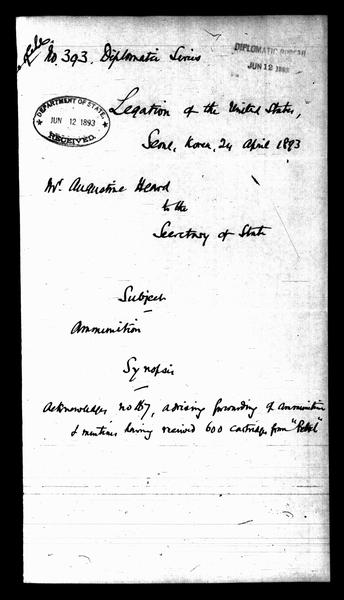 No. 393. Diplomatic Series
DIPLOMATIC BUREAU
JUN 12 1893
DEPARTMENT OF STATE
JUN 12 1893
RECEIVED.
Legation of the United States,
Seoul, Korea, 24 April 1893
Mr. Augustine Heard
to the
Secretary of State
Subject
Ammunition
Synopsis
Acknowledges No 167, advising forwarding of ammunition
& mentions having received 600 cartridges from "Petrel"